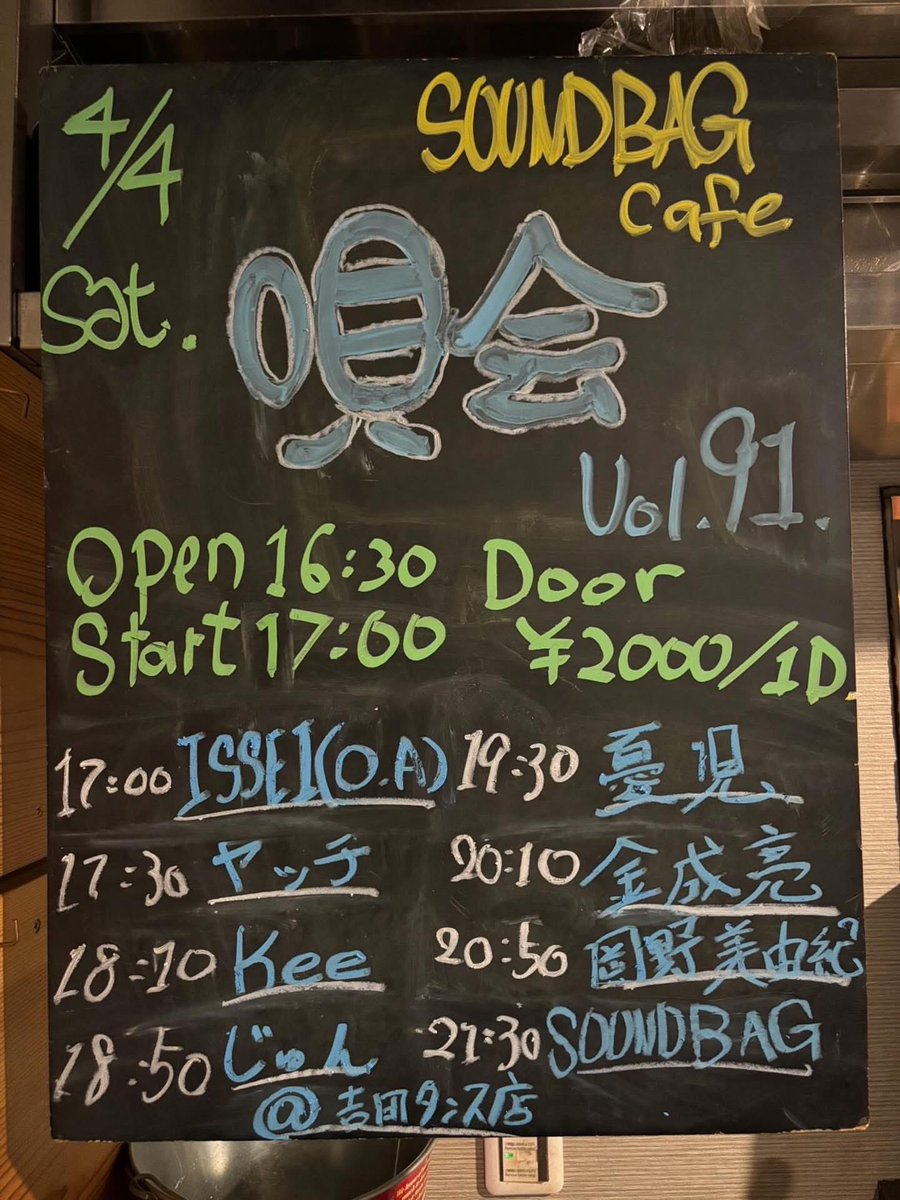 4/4
Sat.
SOUNDBAG
Cafe
唄会
Vol.91.
Open 16:30
Start 17:00
Door
¥2000/1D
17:00 ISSEI(O.A)
17:30 ヤッチ
18:10 Kee
18:50 じゅん
@吉田タンス店
19:30 憂児
20:10 金成亮
20:50 岡野美由紀
21:30 SOUNDBAG